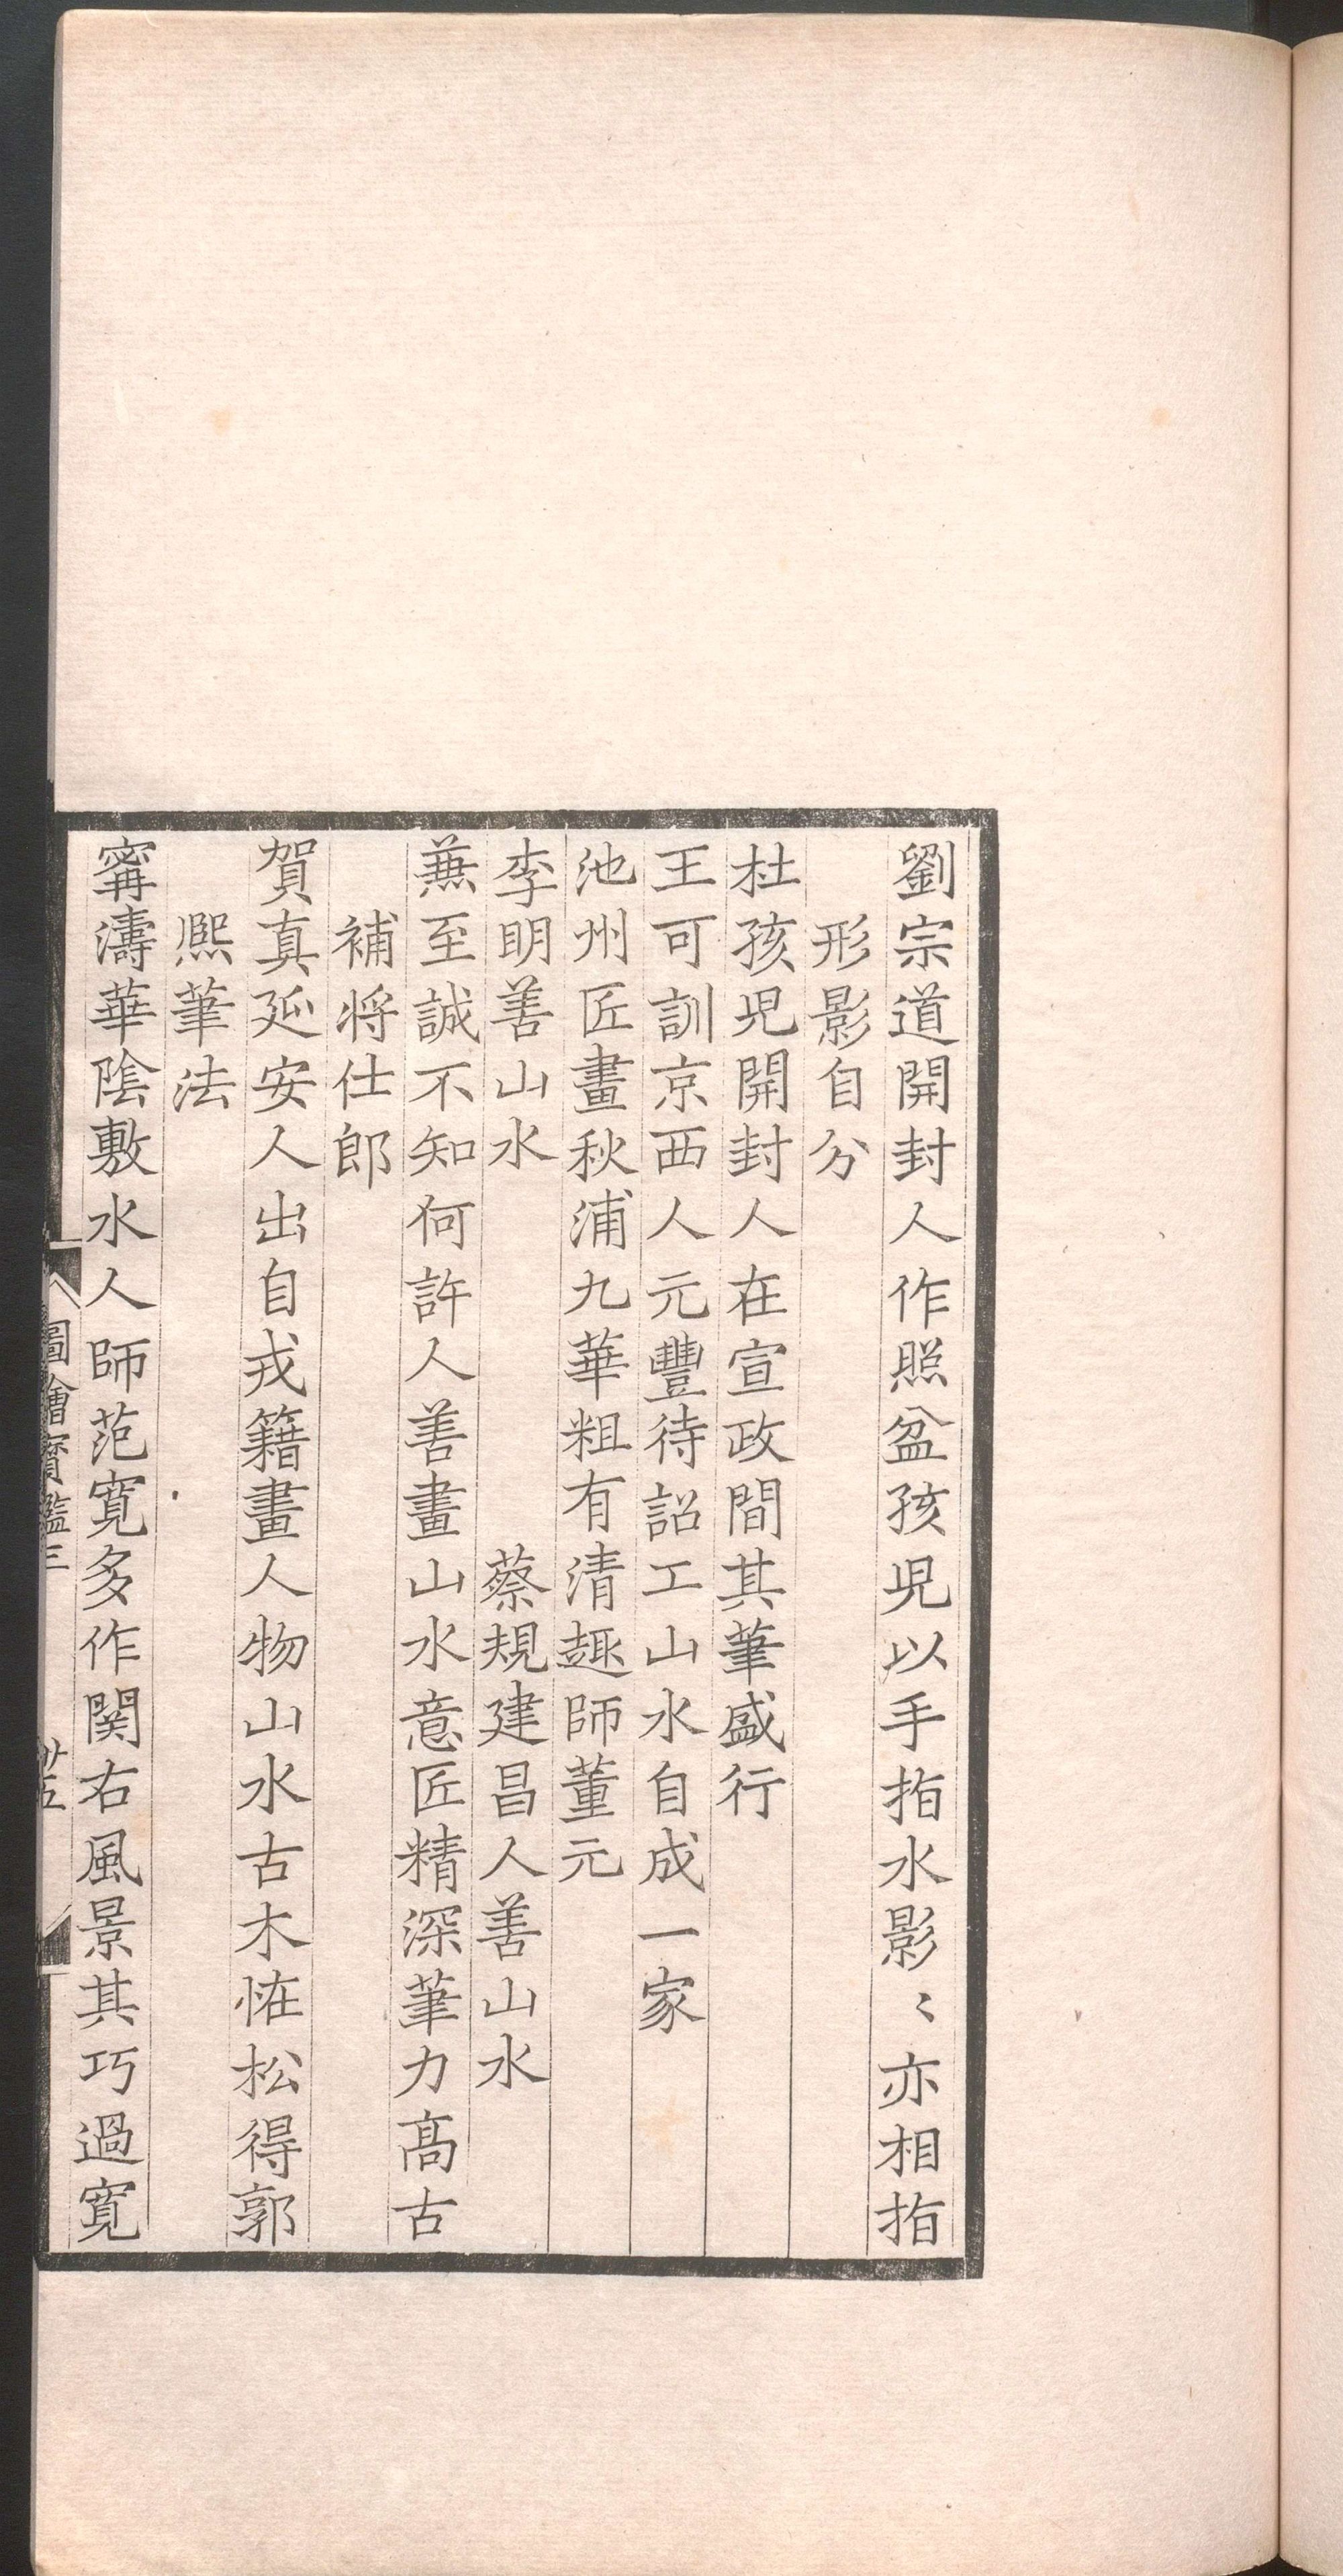 劉宗道開封人作照盆孩児以手指水影〻亦相指
形影自分
杜孩児開封人在宣政間其筆盛行
王可訓京西人元豐待詔工山水自成一家
池州匠畫秋浦九華粗有清趣師董元
李明善山水　蔡規建昌人善山水
蕪至誠不知何許人善畫山水意匠精深筆力髙古
補将仕郎
賀真延安人出自戎籍畫人物山水古木恠松得郭
熈筆法
甯濤華陰敷水人師范寛多作関右風景其巧過寛
圖繪寳鑑三
廿五